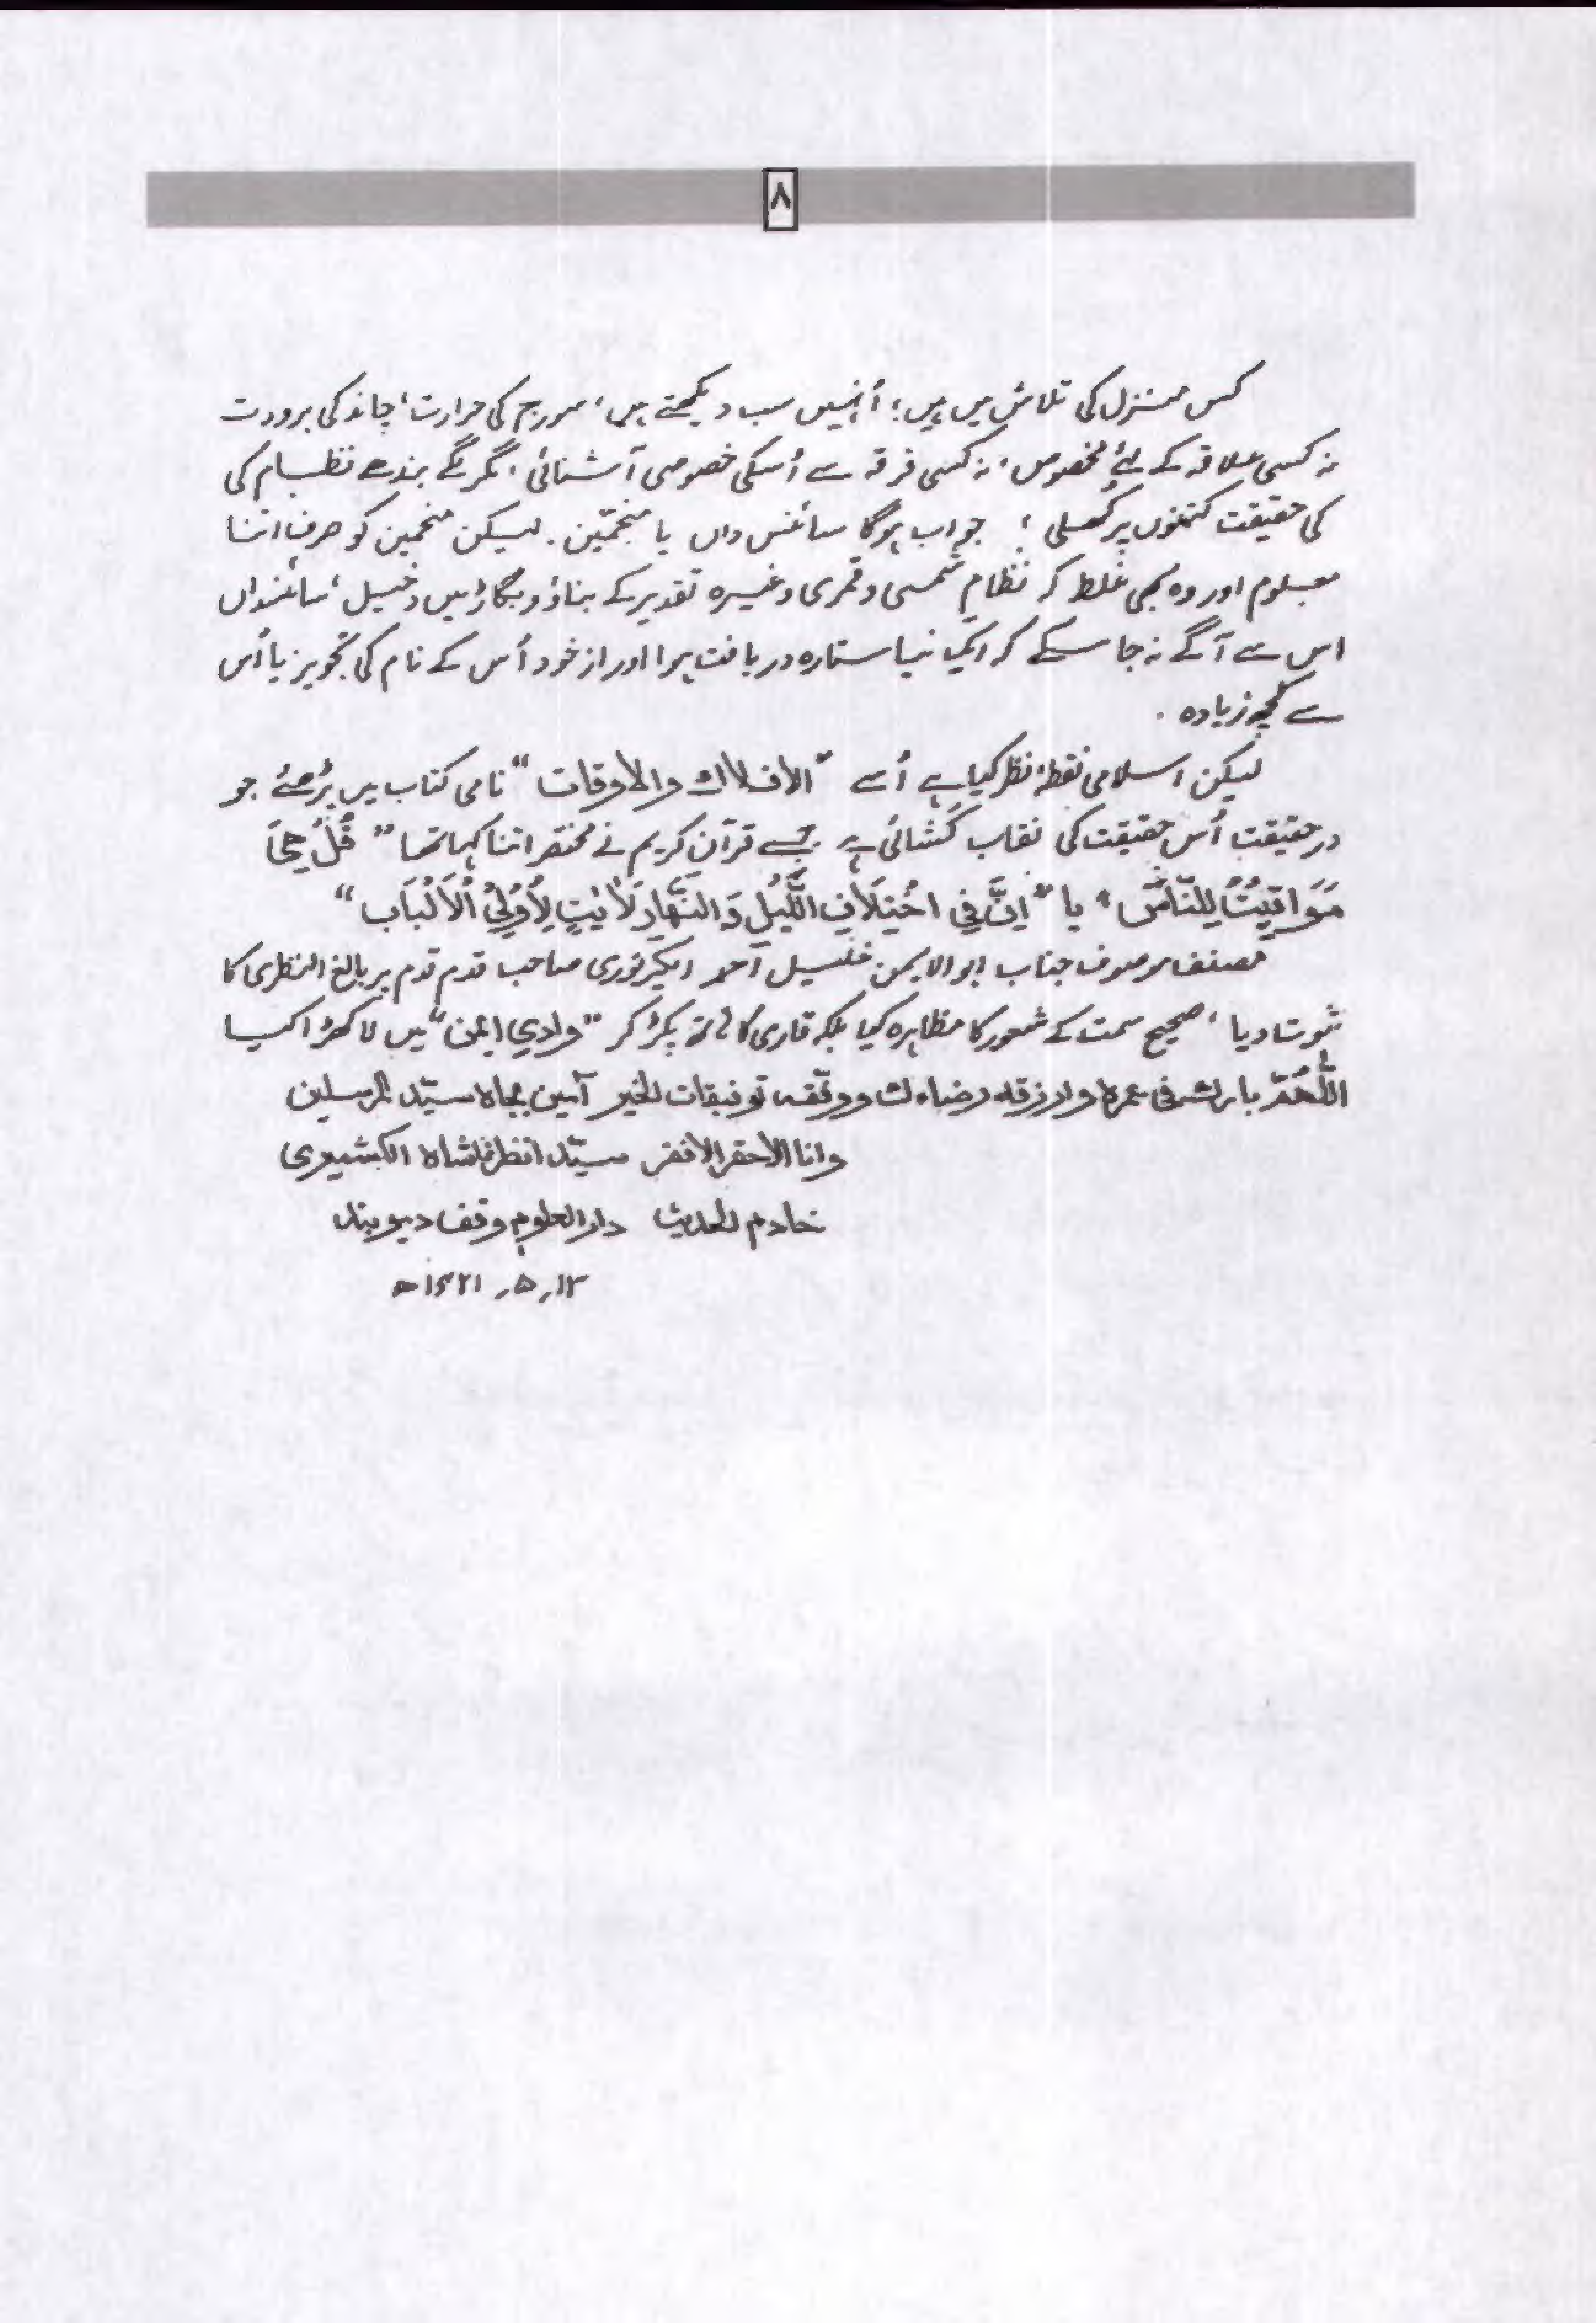 ۸
کس منزل کی تلاش میں ہیں؛ اُنہیں سب دیکھتے ہیں، سورج کی حرارت، چاند کی برودت
نہ کسی علاقہ کے لئے مخصوص، نہ کسی فرقہ سے اُسکی خصوصی آشنائی، مگر لگے بندھے نظام کی
کی حقیقت کتنوں پر کھلی؛ جواب ہوگا سائنس داں یا منجمّین. لیکن منجمین کو صرف اتنا
معلوم اور وہ بھی غلط کہ نظامِ شمسی و قمری وغیرہ تقدیر کے بناؤ و بگاڑ میں دخیل، سائنسداں
اس سے آگے نہ جا سکے کہ ایک نیا ستارہ دریافت ہوا اور از خود اُس کے نام کی تجویز یا اُس
سے کچھ زیادہ .
لیکن اسلامی نقطۂ نظر کیا ہے اُسے "الافلاک والاوقات" نامی کتاب میں پڑھئے جو
درحقیقت اُس حقیقت کی نقاب کشائی ہے جسے قرآن کریم نے مختصر اتنا کہا تھا "قُلْ هِيَ
مَوَاقِيْتُ لِلنَّاسِ" یا "اِنَّ فِي اخْتِلَافِ اللَّيْلِ وَالنَّهَارِ لَاٰيٰتٍ لِاُوْلِيْ الْاَلْبَابِ"
مصنف موصوف جناب ابوالایمن خلیل احمد صاحب قدم قدم پر بالغ النظری کا
ثبوت دیا، صحیح سمت کے شعور کا مظاہرہ کیا بلکہ قاری کا ہاتھ پکڑ کر "وادیِ ایمن" میں لا کھڑا کیا
اللّٰهُمَّ بارك في عمره وارزقه رضاءك ووفقه توفيقات الخير آمين بجاه سيّد المرسلين
وانا الاحقر الافقر سيّد انظر شاه الكشميري
خادم الحديث دار العلوم وقف ديوبند
۱۲ر ۵ر ۱۴۲۱ھ